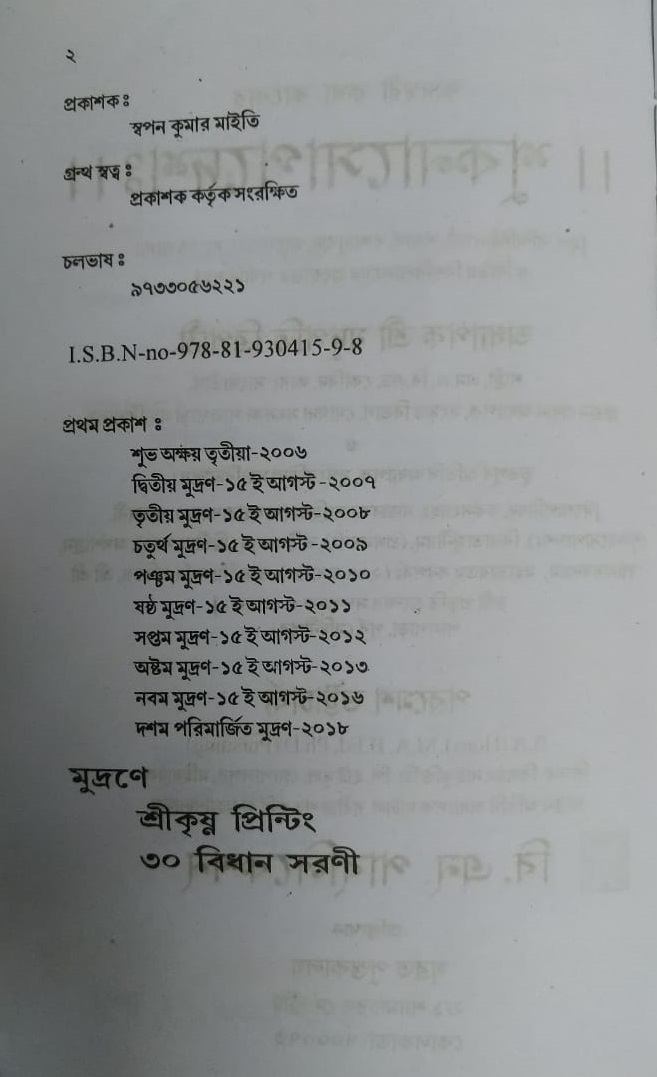 ২
প্রকাশক ঃ
স্বপন কুমার মাইতি
গ্রন্থ স্বত্ব ঃ
প্রকাশক কর্তৃক সংরক্ষিত
চলভাষ ঃ
৯৭৩৩০৫৬২২১
I.S.B.N-no-978-81-930415-9-8
প্রথম প্রকাশ ঃ
শুভ অক্ষয় তৃতীয়া-২০০৬
দ্বিতীয় মুদ্রণ-১৫ ই আগস্ট-২০০৭
তৃতীয় মুদ্রণ-১৫ ই আগস্ট-২০০৮
চতুর্থ মুদ্রণ-১৫ ই আগস্ট-২০০৯
পঞ্চম মুদ্রণ-১৫ ই আগস্ট-২০১০
ষষ্ঠ মুদ্রণ-১৫ ই আগস্ট-২০১১
সপ্তম মুদ্রণ-১৫ ই আগস্ট-২০১২
অষ্টম মুদ্রণ-১৫ ই আগস্ট-২০১৩
নবম মুদ্রণ-১৫ ই আগস্ট-২০১৬
দশম পরিমার্জিত মুদ্রণ-২০১৮
মুদ্রণে
শ্রীকৃষ্ণ প্রিন্টিং
৩০ বিধান সরণী